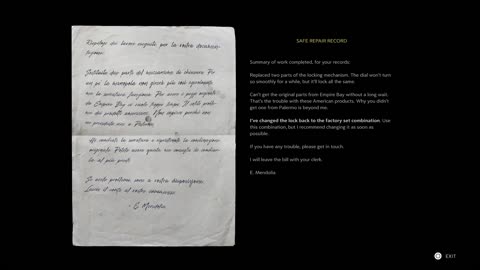 Riepilogo del lavoro eseguito per la vostra documen-
tazione:
Sostituite due parti del meccanismo di chiusura. Per
la serratura funziona. Per avere i pezzi originali
da Empire Bay ci vuole troppo tempo.
dei prodotti americani. Non capisco perché non
ne prendete uno a Palermo.
Ho cambiato la serratura e ripristinato la combinazione
originale. Potete usare questa ma consiglio di cambiar-
la al più presto.
Se avete problemi sono a vostra disposizione.
Lascio il conto al vostro commesso.
- E. Mendolia
SAFE REPAIR RECORD
Summary of work completed, for your records:
Replaced two parts of the locking mechanism. The dial won't turn
so smoothly for a while, but it'll lock all the same.
Can't get the original parts from Empire Bay without a long wait.
That's the trouble with these American products. Why you didn't
get one from Palermo is beyond me.
I've changed the lock back to the factory set combination. Use
this combination, but I recommend changing it as soon as
possible.
If you have any trouble, please get in touch.
I will leave the bill with your clerk.
E. Mendolia
EXIT